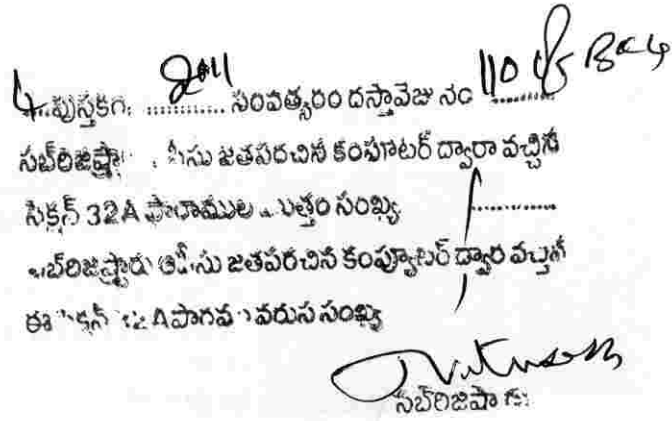 4 పుస్తకం 2011 సంవత్సరం దస్తావేజు నం 110 of BK4
సబ్‌రిజిస్ట్రా జతపరచిన కంప్యూటర్ ద్వారా వచ్చిన
సెక్షన్ 32A ఫారాముల మొత్తం సంఖ్య
సబ్‌రిజిస్ట్రారు ఆఫీసు జతపరచిన కంప్యూటర్ ద్వారా వచ్చిన
ఈ సెక్షన్ 32A వరుస సంఖ్య
సబ్‌రిజిస్ట్రారు